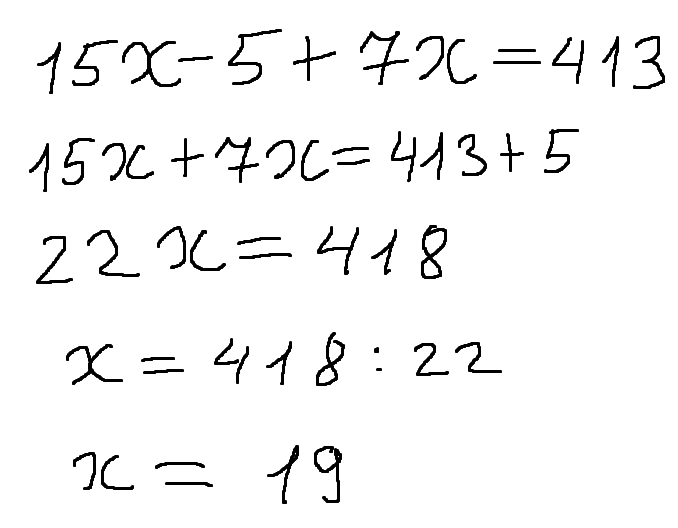 15x-5+7x=413
15x+7x=413+5
22x=418
x=418:22
x=19